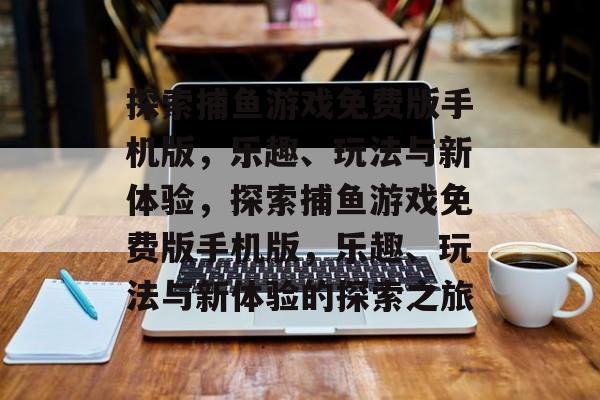 探索捕鱼游戏免费版手
机版，乐趣、玩法与新
体验，探索捕鱼游戏免
费版手机版，乐趣、玩
法与新体验的探索之旅